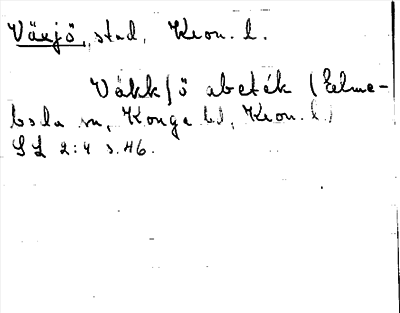 Växjö, stad, Kron. l.
Våkkſö abeték (Eelme-
boda sn, Konga hd, Kron. l.)
SL 2:4 s. 46.